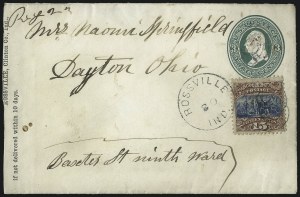 Mrs Naomi Springfield
Dayton Ohio
Baxter St ninth Ward
ROSSVILLE
IND
15
If not delivered within 10 days.
ROSSVILLE, Clinton Co.,